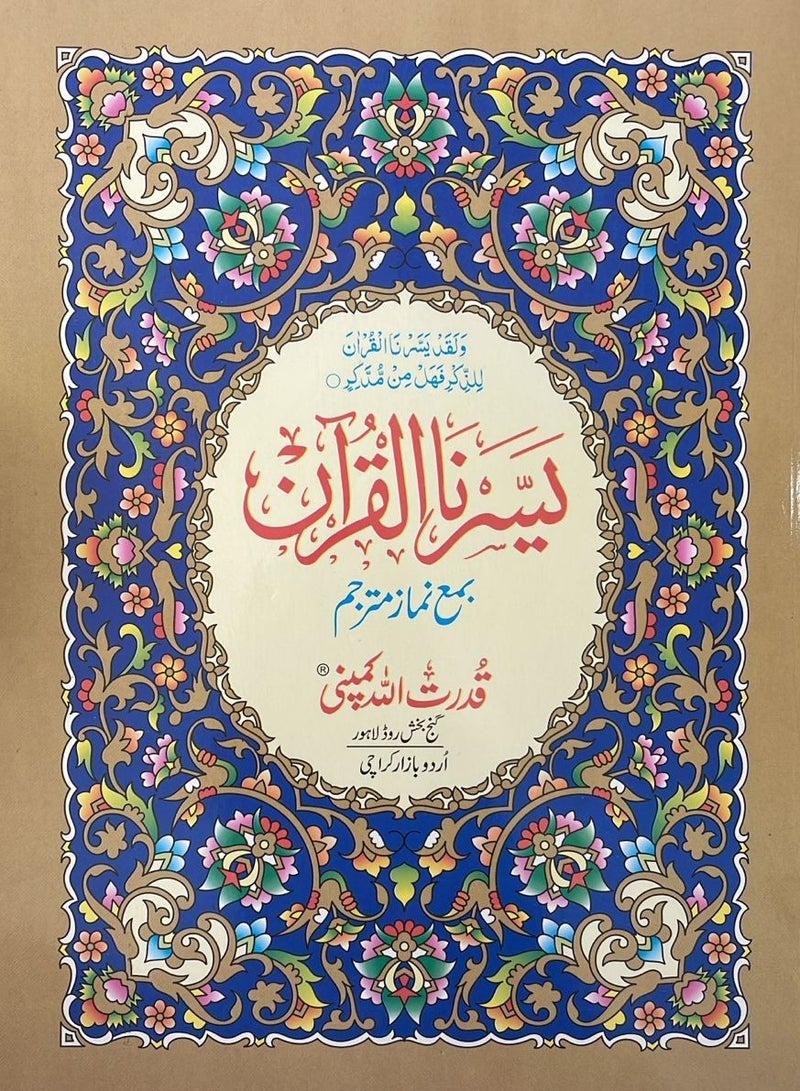 وَلَقَدْ يَسَّرْنَا الْقُرْاٰنَ
لِلذِّكْرِ فَهَلْ مِنْ مُّدَّكِرٍ ○
يَسَّرنَا القُرآن
بمع نماز مترجم
قُدرت اللہ کمپنی ®
گنج بخش روڈ لاہور
اُردو بازار کراچی